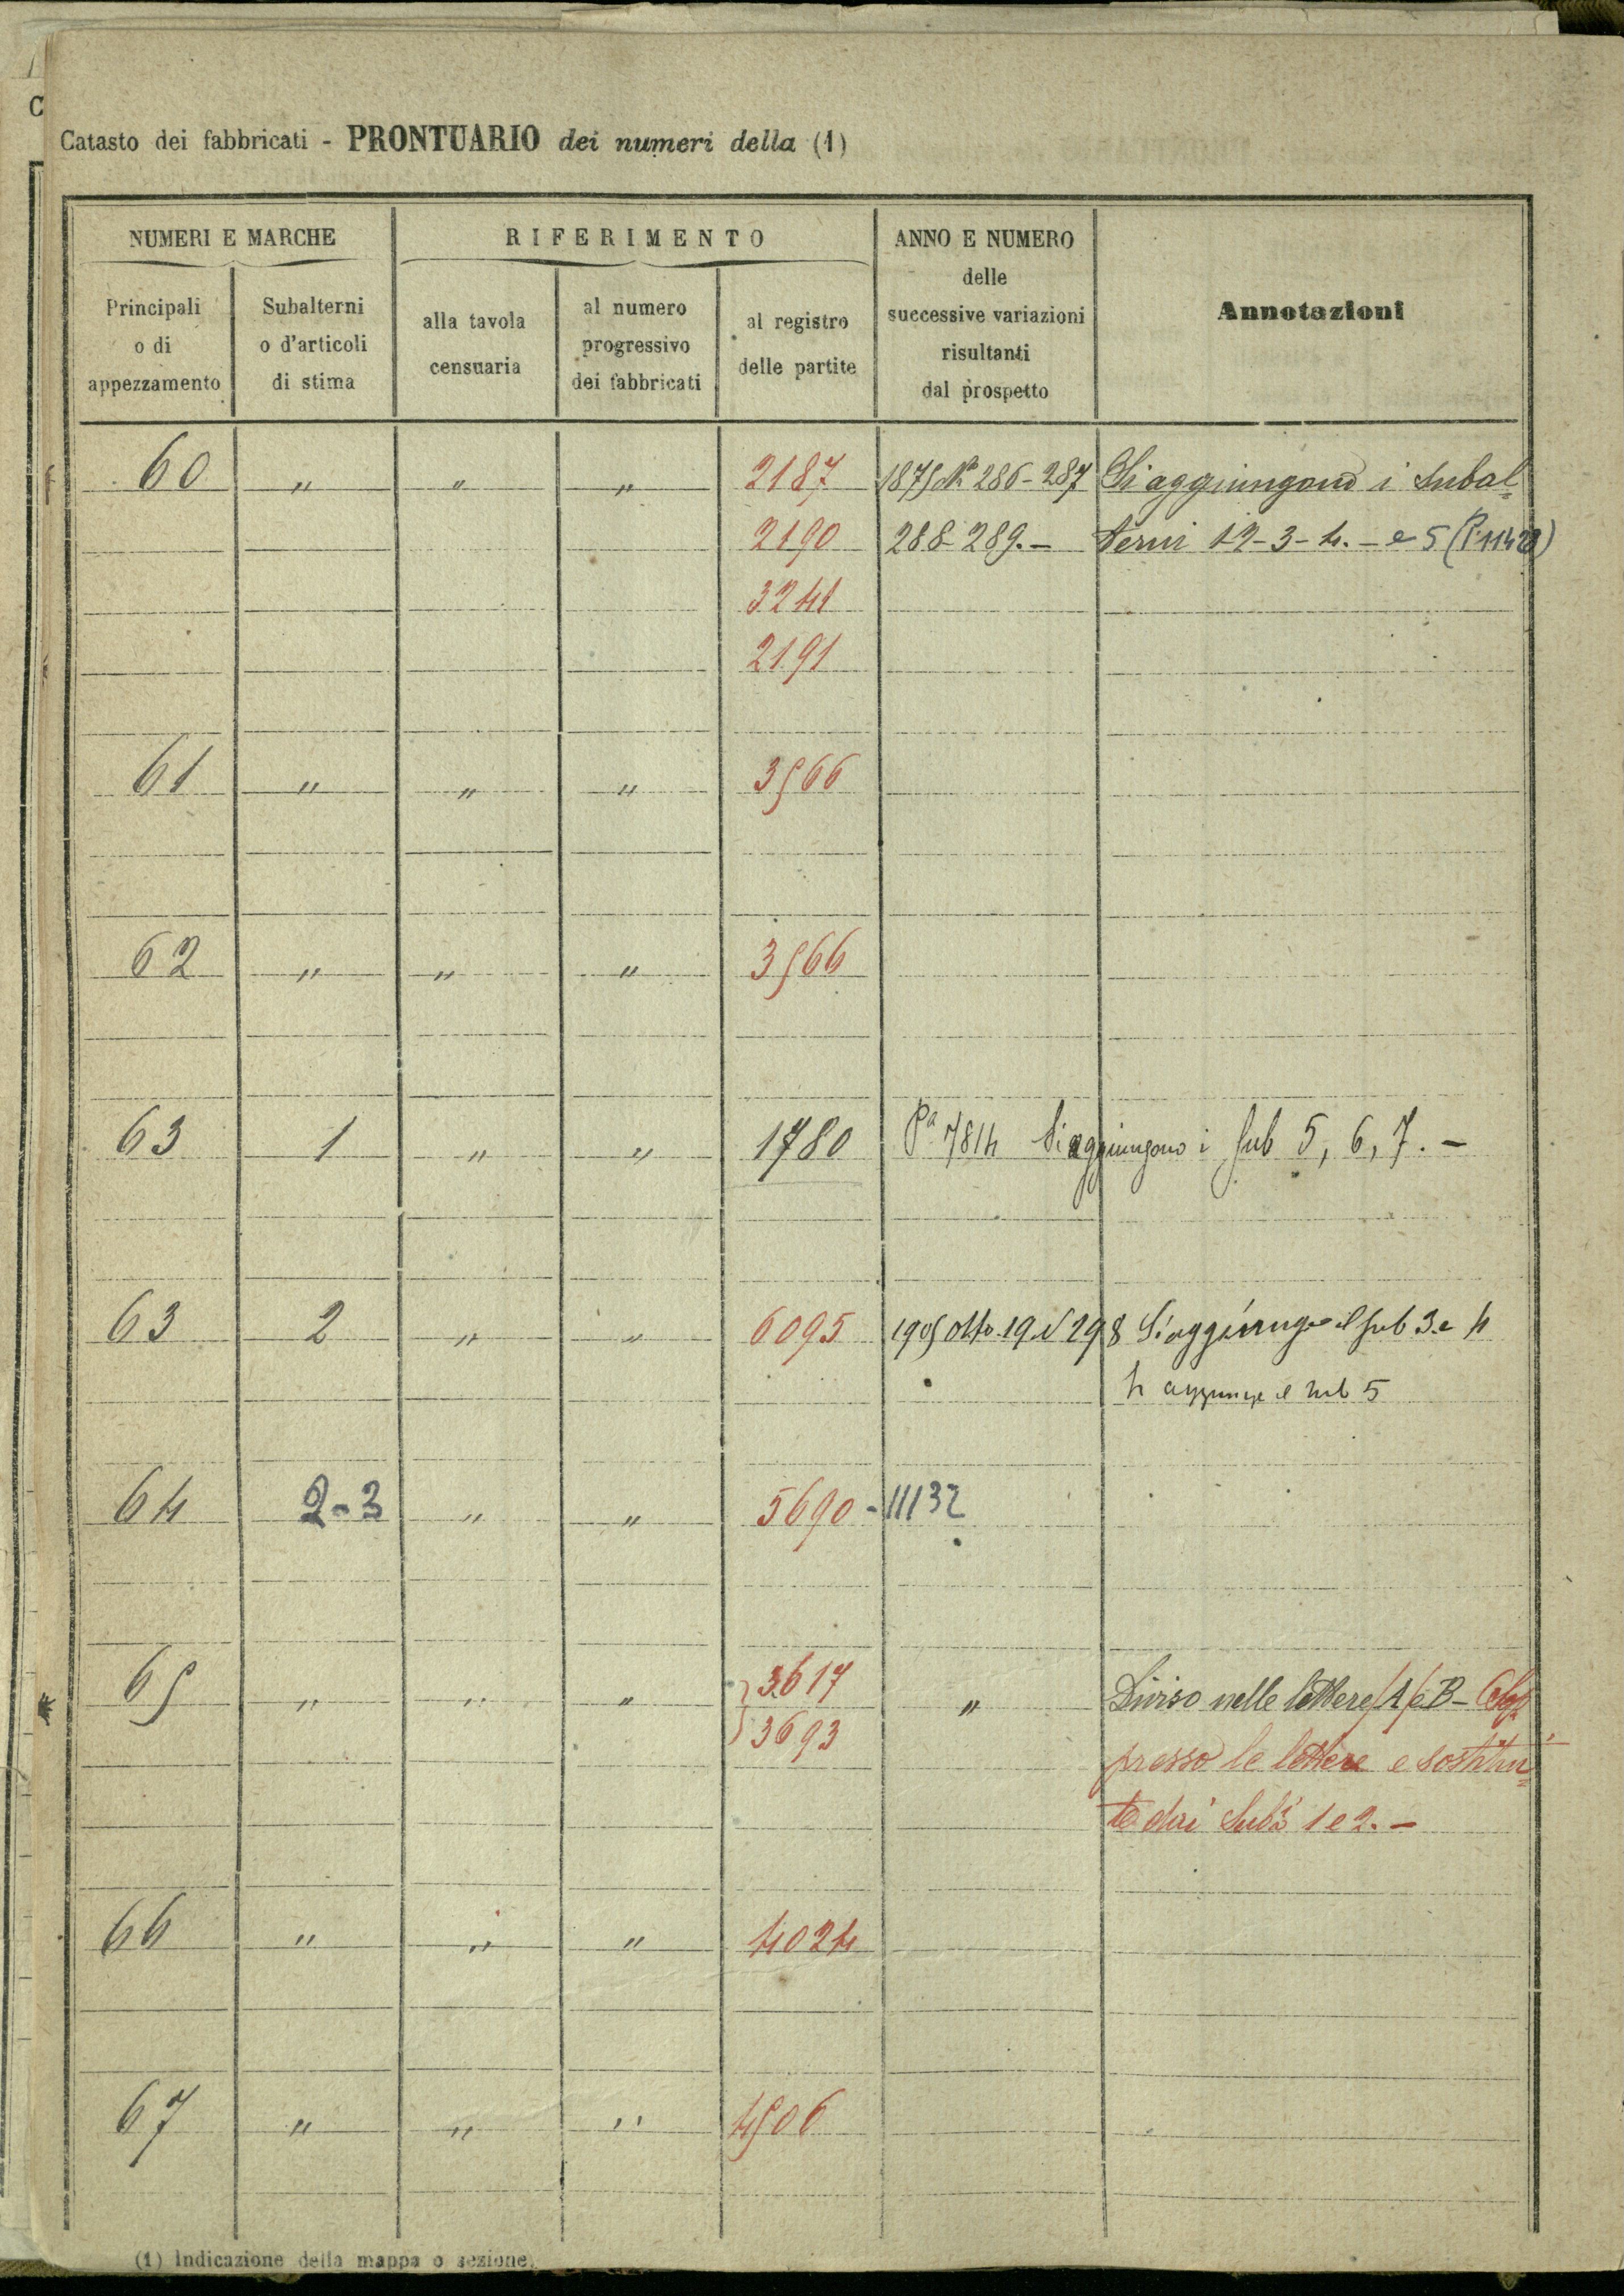 Catasto dei fabbricati - PRONTUARIO dei numeri della (1)
NUMERI E MARCHE
RIFERIMENTO
ANNO E NUMERO
delle
successive variazioni
risultanti
dal prospetto
Annotazioni
Principali
o di
appezzamento
Subalterni
o d'articoli
di stima
alla tavola
censuaria
al numero
progressivo
dei fabbricati
al registro
delle partite
60 " " " 2187 1875 N° 286-287 Si aggiungono i subal=
2190 288-289.- terni 1-2-3-4.- e 5 (P 11428)
3241
2191
61 " " " 3566
62 " " " 3566
63 1 " " 1780 Pa 7814 Si aggiungono i sub 5, 6, 7.-
63 2 " " 6095 1905 otto. 19 N 298 Si aggiunge il sub 3 e 4
Si aggiunge il sub 5
64 2-3 " " 5690 - 11132
65 " " " 3617 " Diviso nelle lettere /A/ e B -
3693 presso le lettere e sostitui=
te dai Subi 1 e 2.-
66 " " " 4024
67 " " " 4506
(1) Indicazione della mappa o sezione.